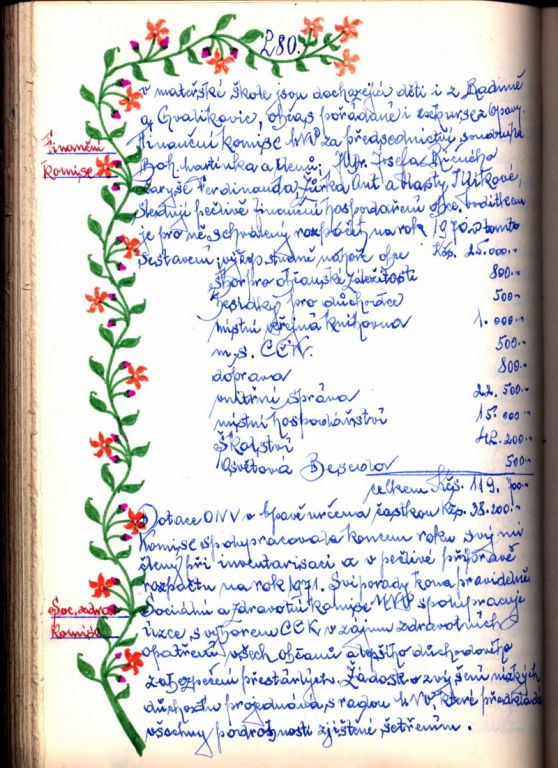 280.
v mateřské škole jsou docházející děti i z Radině
a Chvalíkovic, občas pořádané i exkurse z Opavy.
Finanční komise
Finanční komise MNV za předsednictví, soudruha
Boh. Martinka a členů; Josefa
Ferdinanda, Žůrka Ant a Vlasty
sledují pečlivě finanční hospodaření obce. Vodítkem
je pro ně schválený rozpočet na rok 1970. v tomto
sestavení: výkop studně nahoře obce Kčs. 25.000.-
Sbor pro občanské záležitosti 800.-
Jesličky pro důchodce 500.-
místní veřejná knihovna 1.000.-
m.s. ČČK. 500.-
doprava 800.-
vnitřní správa 22.500.-
místní hospodářství 15.000.-
Školství 42.200.-
Osvětová Beseda 500.-
celkem Kčs. 119. 700.-
Dotace ONV v Opavě určena částkou Kčs. 38.200.-
Komise spolupracovala koncem roku svými
členy při inventarisaci a v pečlivé přípravě
rozpočtu na rok 1971. Své porady koná pravidelně.
Soc. zdrav. komise
Sociální a zdravotní komise MNV spolupracuje
úzce, s výborem ČČK v zájmu zdravotních
opatření všech občanů a lepšího důchodového
zabezpečení přestárlých. Žádosti o zvýšení nízkých
důchodů projednává, s radou MNV, které předkládá
všechny podrobnosti zjištěné, šetřením.